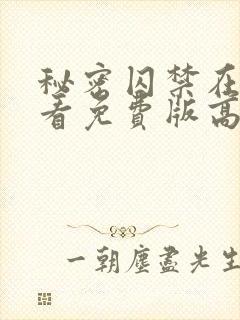 秘密囚禁在
看免费版高
一朝尘尽光生